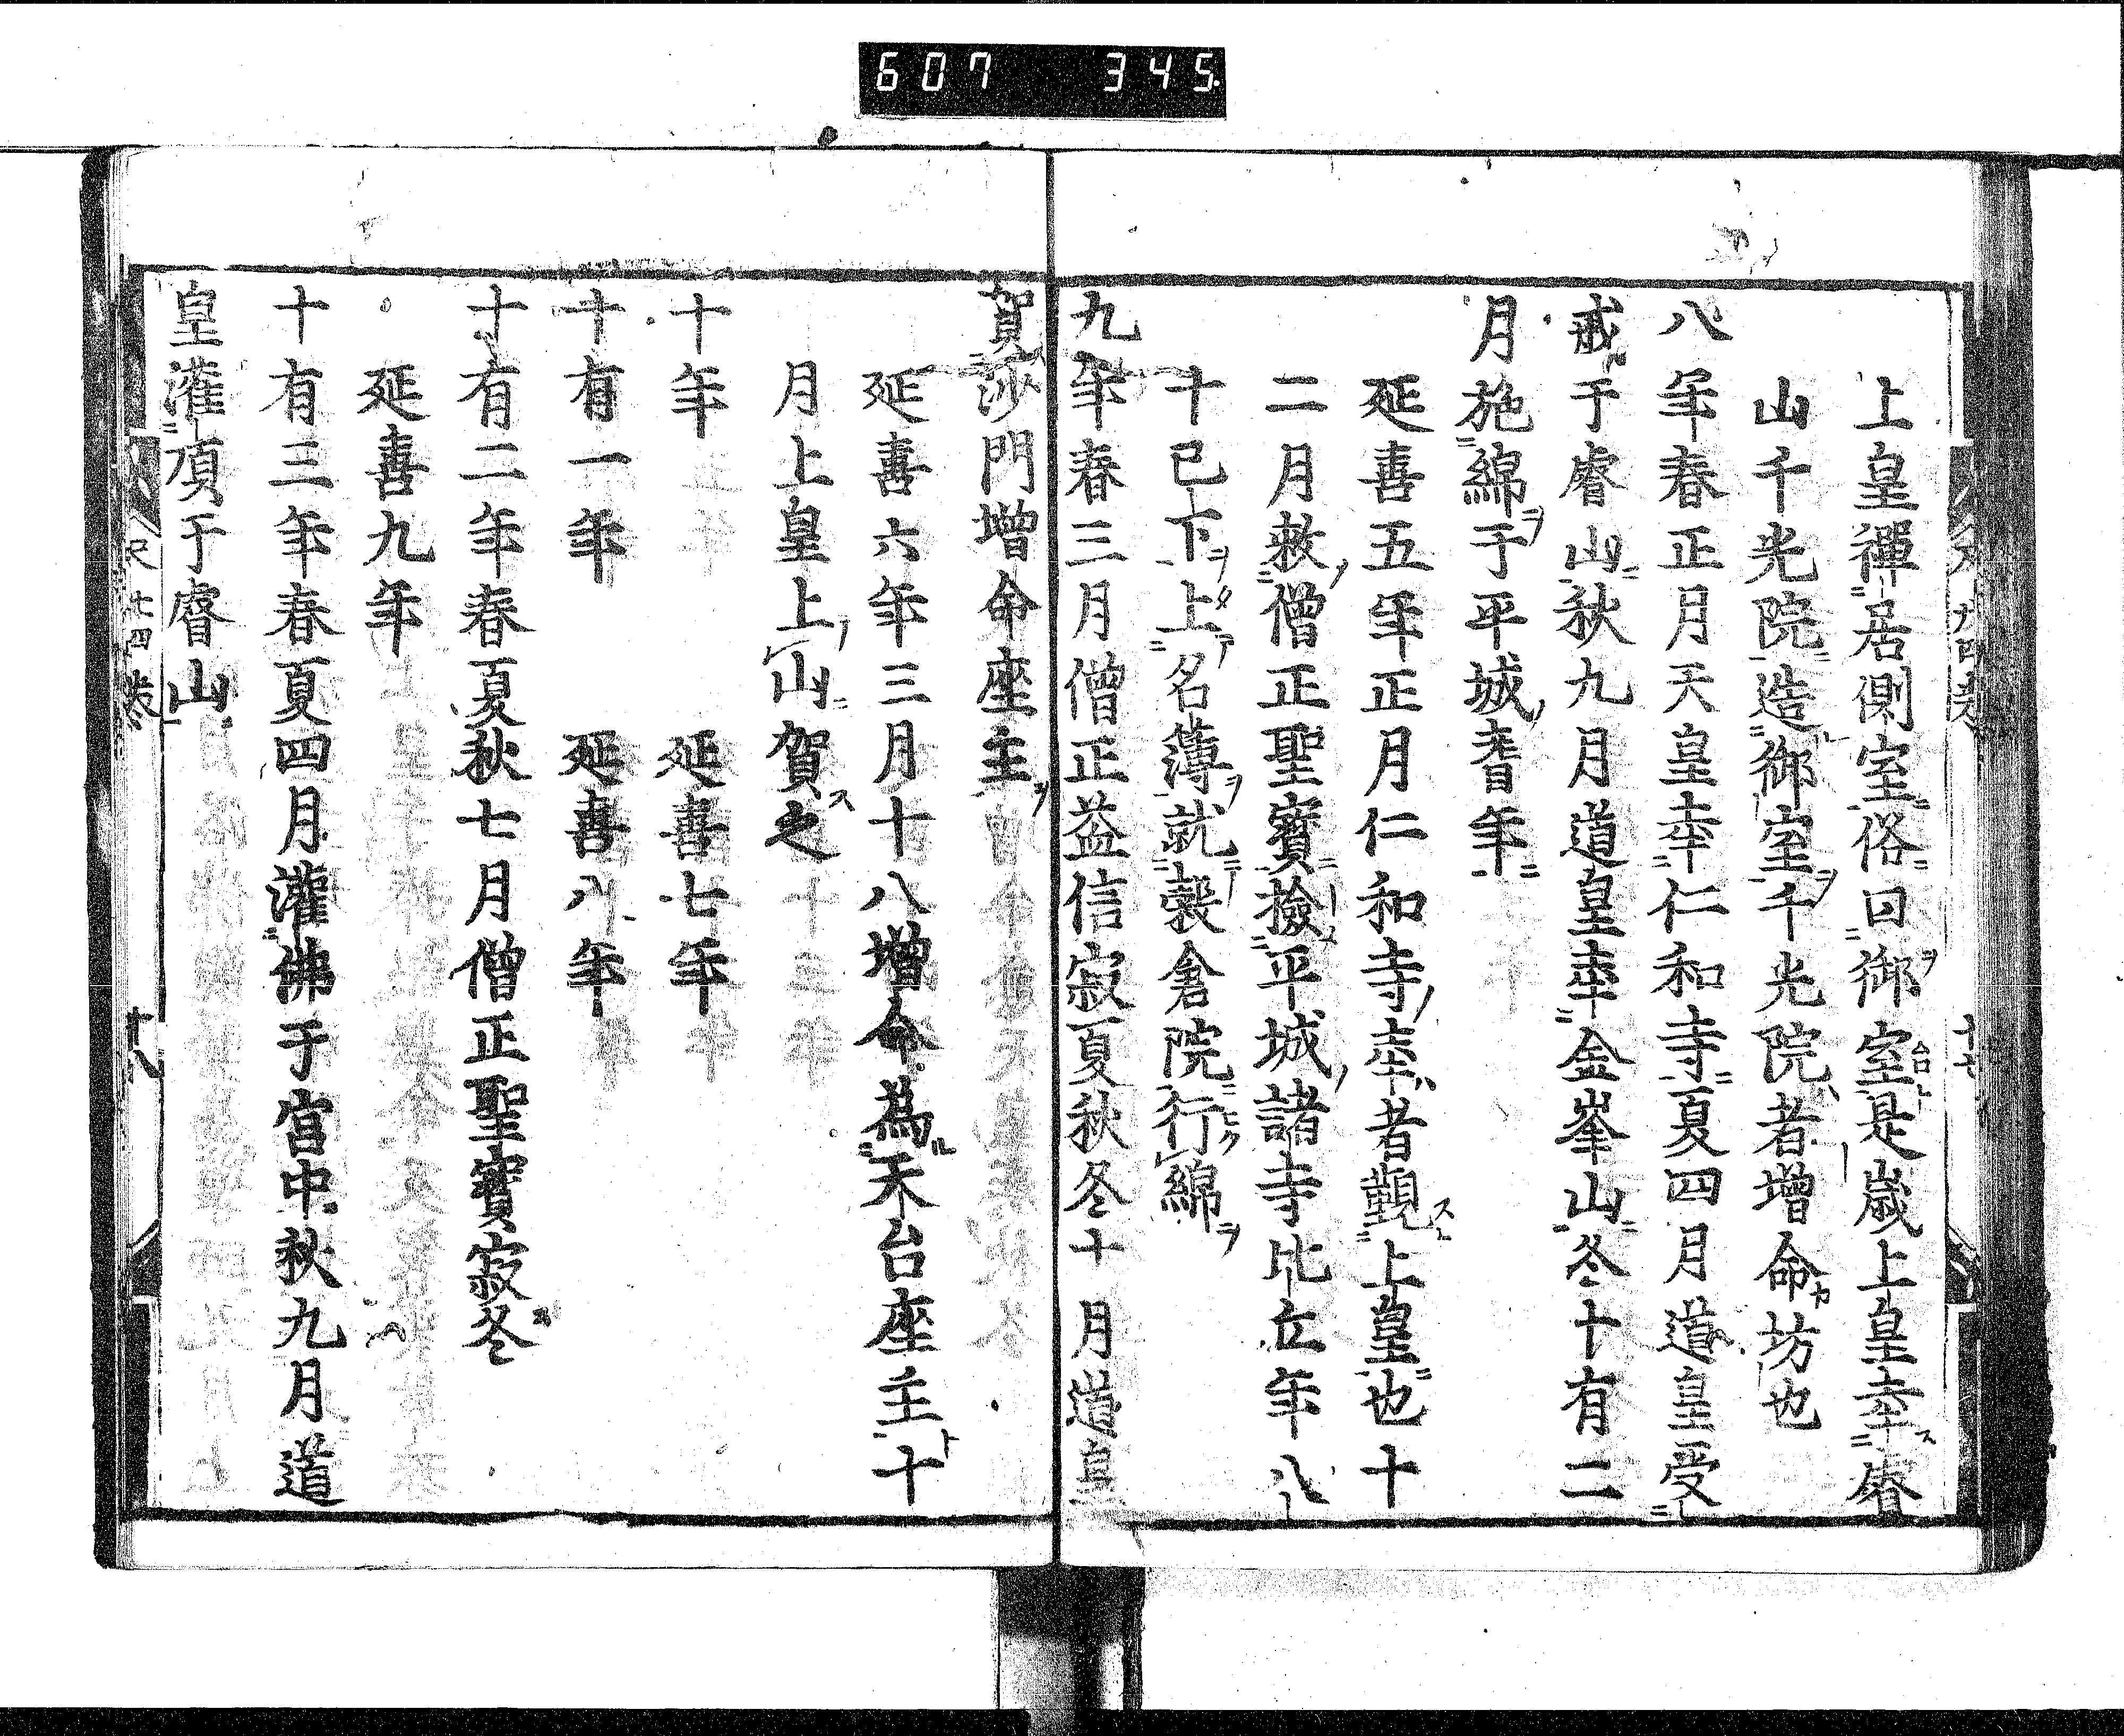 607 345
上皇禪居側室俗曰御室是歳上皇幸睿
山千光院造御室千光院者増命坊也
八年春正月天皇幸仁和寺夏四月道皇受
戒于睿山秋九月道皇幸金峯山冬十有二
月施綿于平城耆年
延喜五年正月仁和寺幸者覲上皇也十
二月敕僧正聖寶撿平城諸寺比丘年八
十已下上名薄就穀倉院行綿
九年春三月僧正益信寂夏秋冬十月道皇
賀沙門増命座主
延喜六年三月十八増命為天台座主十
月上皇上山賀之
十年 延喜七年
十有一年 延喜八年
十有二年春夏秋七月僧正聖寶寂冬
延喜九年
十有三年春夏四月灌佛于宮中秋九月道
皇灌頂于睿山
十四巻
十八